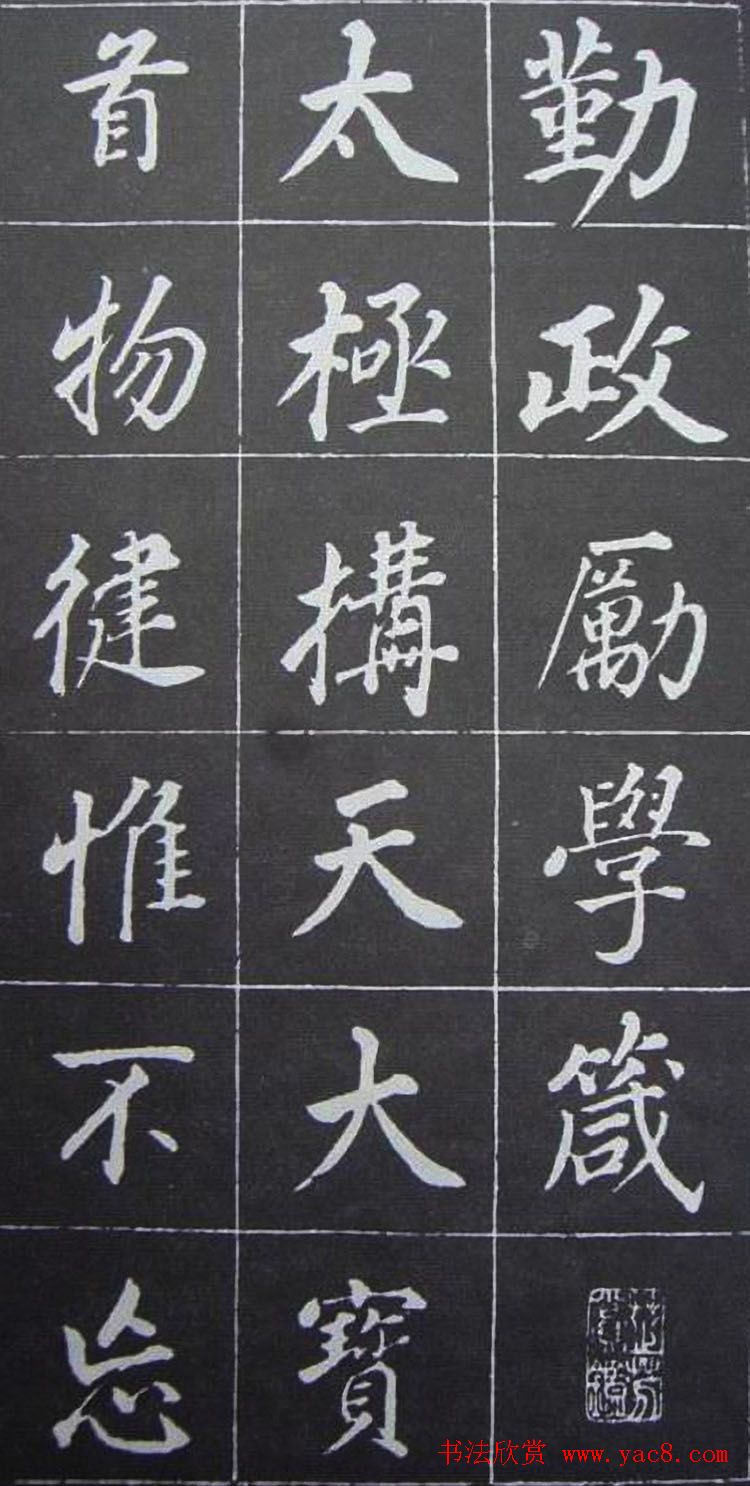 勤政勵學箴
太極搆天大寶
首物健惟不忘
书法欣赏 www.yac8.com